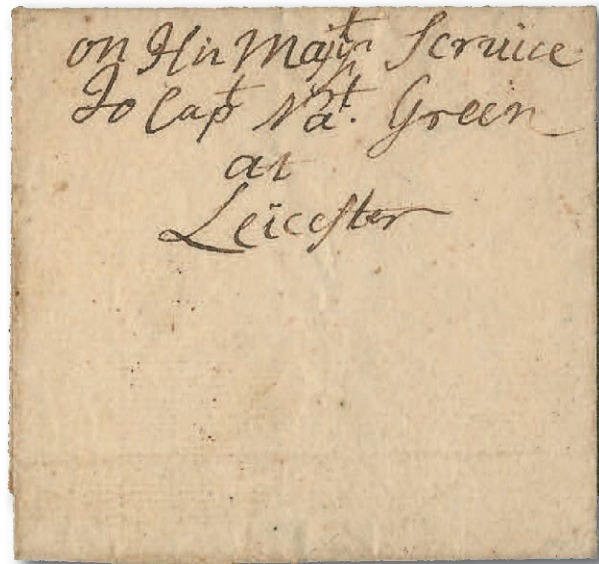 on His Maj.ts Service
To Capt Nat. Green
at
Leicester